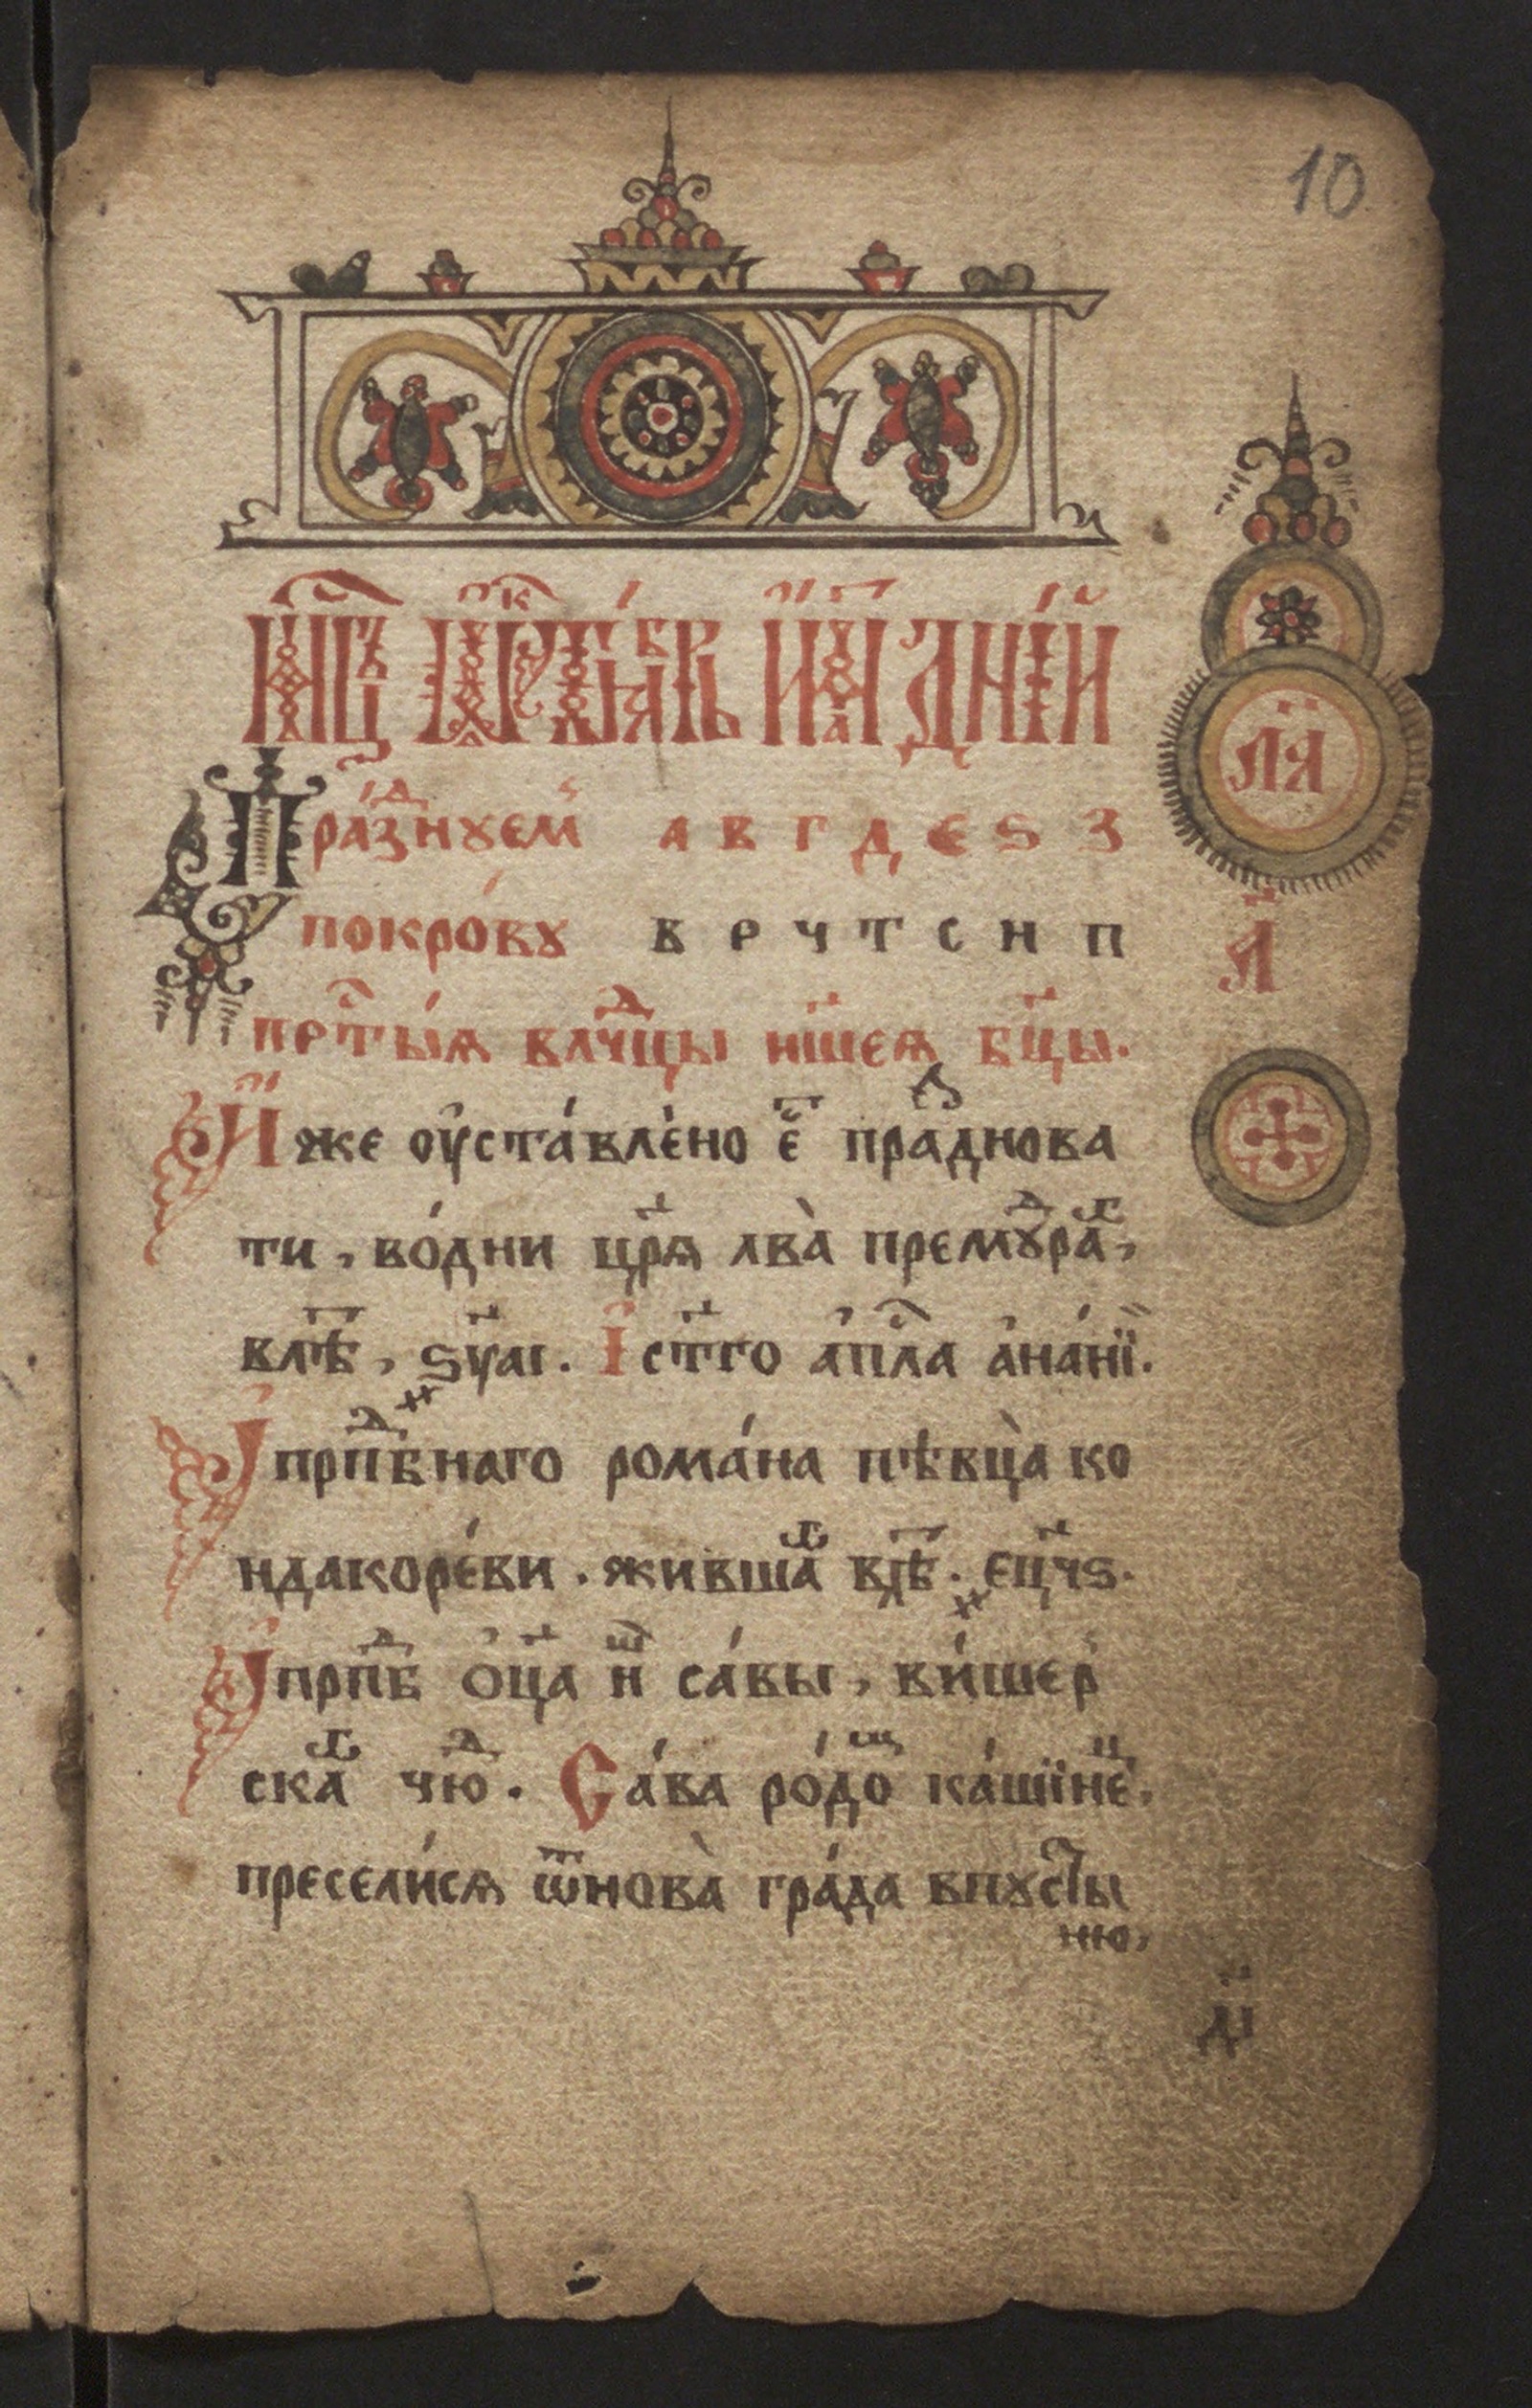 10
мⷭ҇цъ ѻ҆ктѧ́брь и҆ма дні́й
л҃а
пра́зⷣнꙋем а в г д е ѕ з
покро́вꙋ в р ч т с н п
л҃
прⷭ҇ты́ѧ влⷣчцы нш҃еѧ бц҃ы.
И҆же оу҆ста́вле́но е҆ⷭ҇ праⷥднова
ти, во́дни цр҃ѧ лва̀ премꙋⷣраⷢ,
влѣⷮ, ѕу҃аі. І҆ ст҃го а҆пⷭ҇ла а҆на́нїи.
И҆ прпⷣбнаго рома́на пѣвца̀ ко
ндакоре́ви. живⷲаⷢ влѣⷮ. ҂єц҃чѕ.
И҆ прпⷣб ѻ҆ц҃а нⷲ са́вы, ви́шер
скаⷢ чюⷣ. Са́ва ро́доⷨ ка́шїнеⷰ,
пресели́сѧ ѿнова̀ гра́да впꙋсты
ню,
д҃і